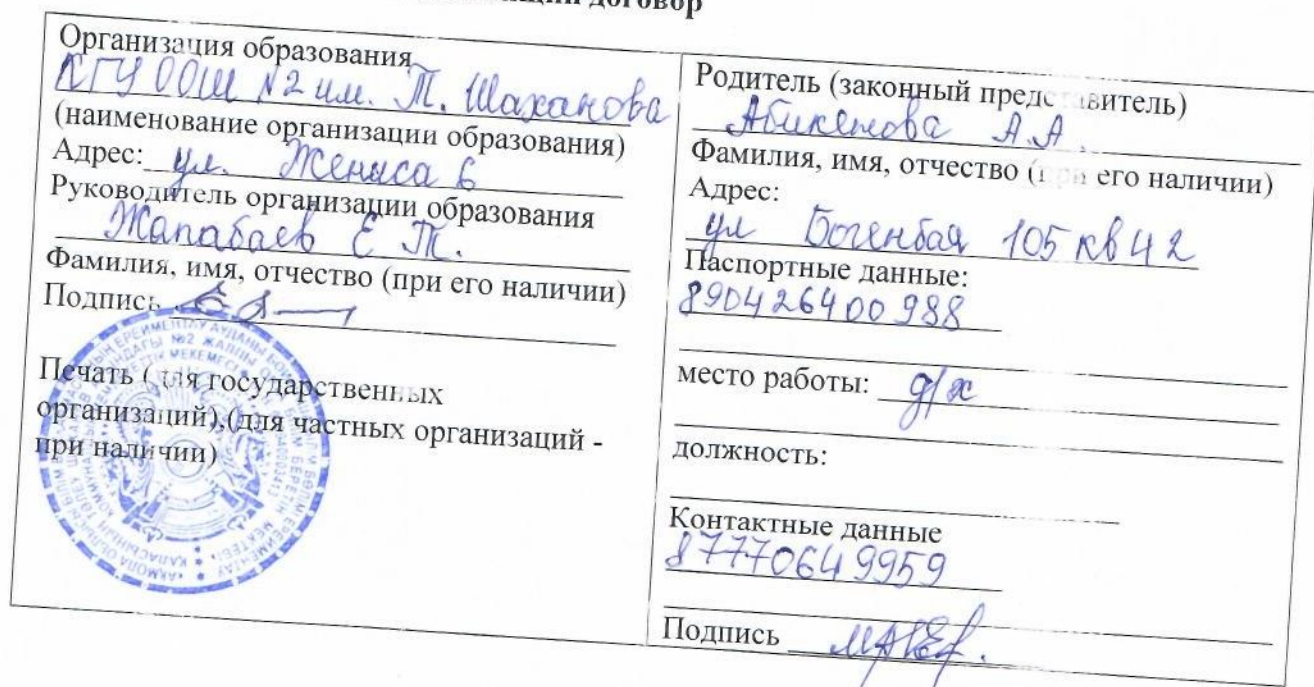 договор
Организация образования
КГУ ООШ №2 им. Т. Шаханова
(наименование организации образования)
Адрес: ул. Жениса 6
Руководитель организации образования
Жапабаев Е Т.
Фамилия, имя, отчество (при его наличии)
Подпись
Печать (для государственных
организаций),(для частных организаций -
при наличии)
Родитель (законный представитель)
Абикенова А.А.
Фамилия, имя, отчество (при его наличии)
Адрес:
ул Богенбая 105 кв 42
Паспортные данные:
890426400988
место работы: д/х
должность:
Контактные данные
87770649959
Подпись